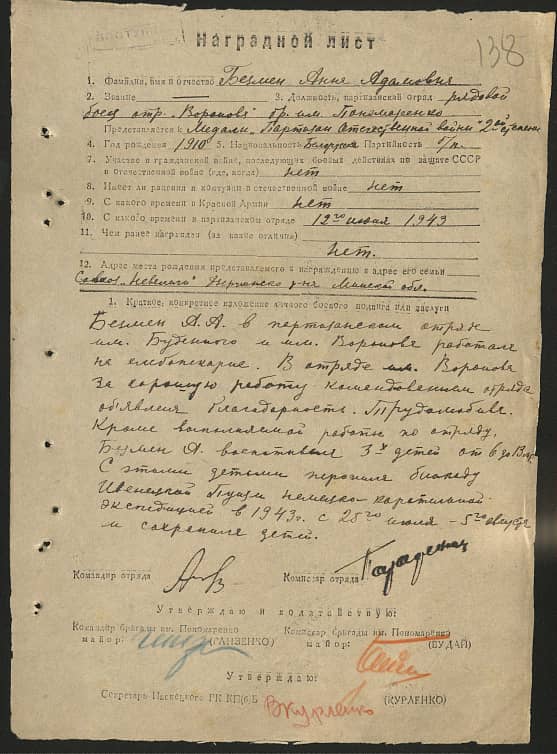 138
Наградной лист
1. Фамилия, имя и отчество Безмен Анна Адамовна
2. Звание 3. Должность, партизанский отряд рядовой
боец отр. Воронова бр. им. Пономаренко
Представляется к Медали „Партизан Отечественной войны" 2ой степени
4. Год рождения 1910 5. Национальность Белоруска Партийность б/п
7. Участие в гражданской войне, последующих боевых действиях по защите СССР
и отечественной войне (где, когда) нет
8. Имеет ли ранения и контузии в отечественной войне нет
9. С какого времени в Красной Армии нет
10. С какого времени в партизанском отряде 12го июня 1943
11. Чем ранее награжден (за какие отличия)
Нет.
12. Адрес места рождения представляемого к награждению и адрес его семьи
Дзержинско р-на Минской обл.
1. Краткое, конкретное изложение личного боевого подвига или заслуги
Безмен А.А. в партизанском отряде
им. Буденного и им. Воронова работала
на хлебопекарне. В отряде им. Воронова
за хорошую работу командованием отряда
объявлена благодарность. Трудолюбива.
Кроме выполняемой работы по отряду,
Безмен А. воспитывала 3х детей от 6 до 13 лет.
С этими детьми пережила блокаду
Ивенецкой Пущи немецко-карательной
экспедицией в 1943г. с 25го июля - 5го августа
и сохранила детей.
Командир отряда Комиссар отряда
Утверждаю и ходатайствую:
Командир бригады им. Пономаренко Комиссар бригады им. Пономаренко
майор: (ГАНЗЕНКО) майор: (БУДАЙ)
Утверждаю:
Секретарь Ивенецкого РК КП(б)Б ВКурленко (КУРЛЕНКО)